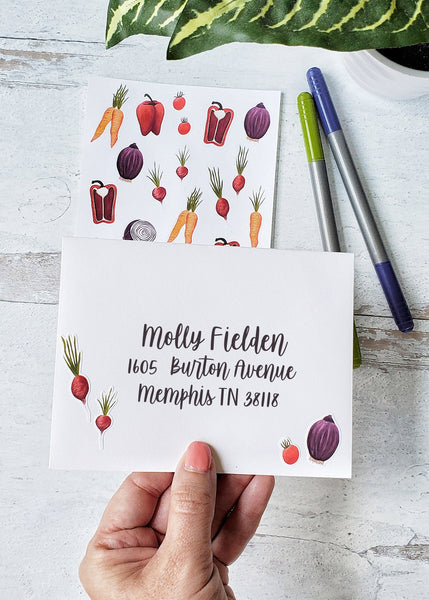 Molly Fielden
1605 Burton Avenue
Memphis TN 38118